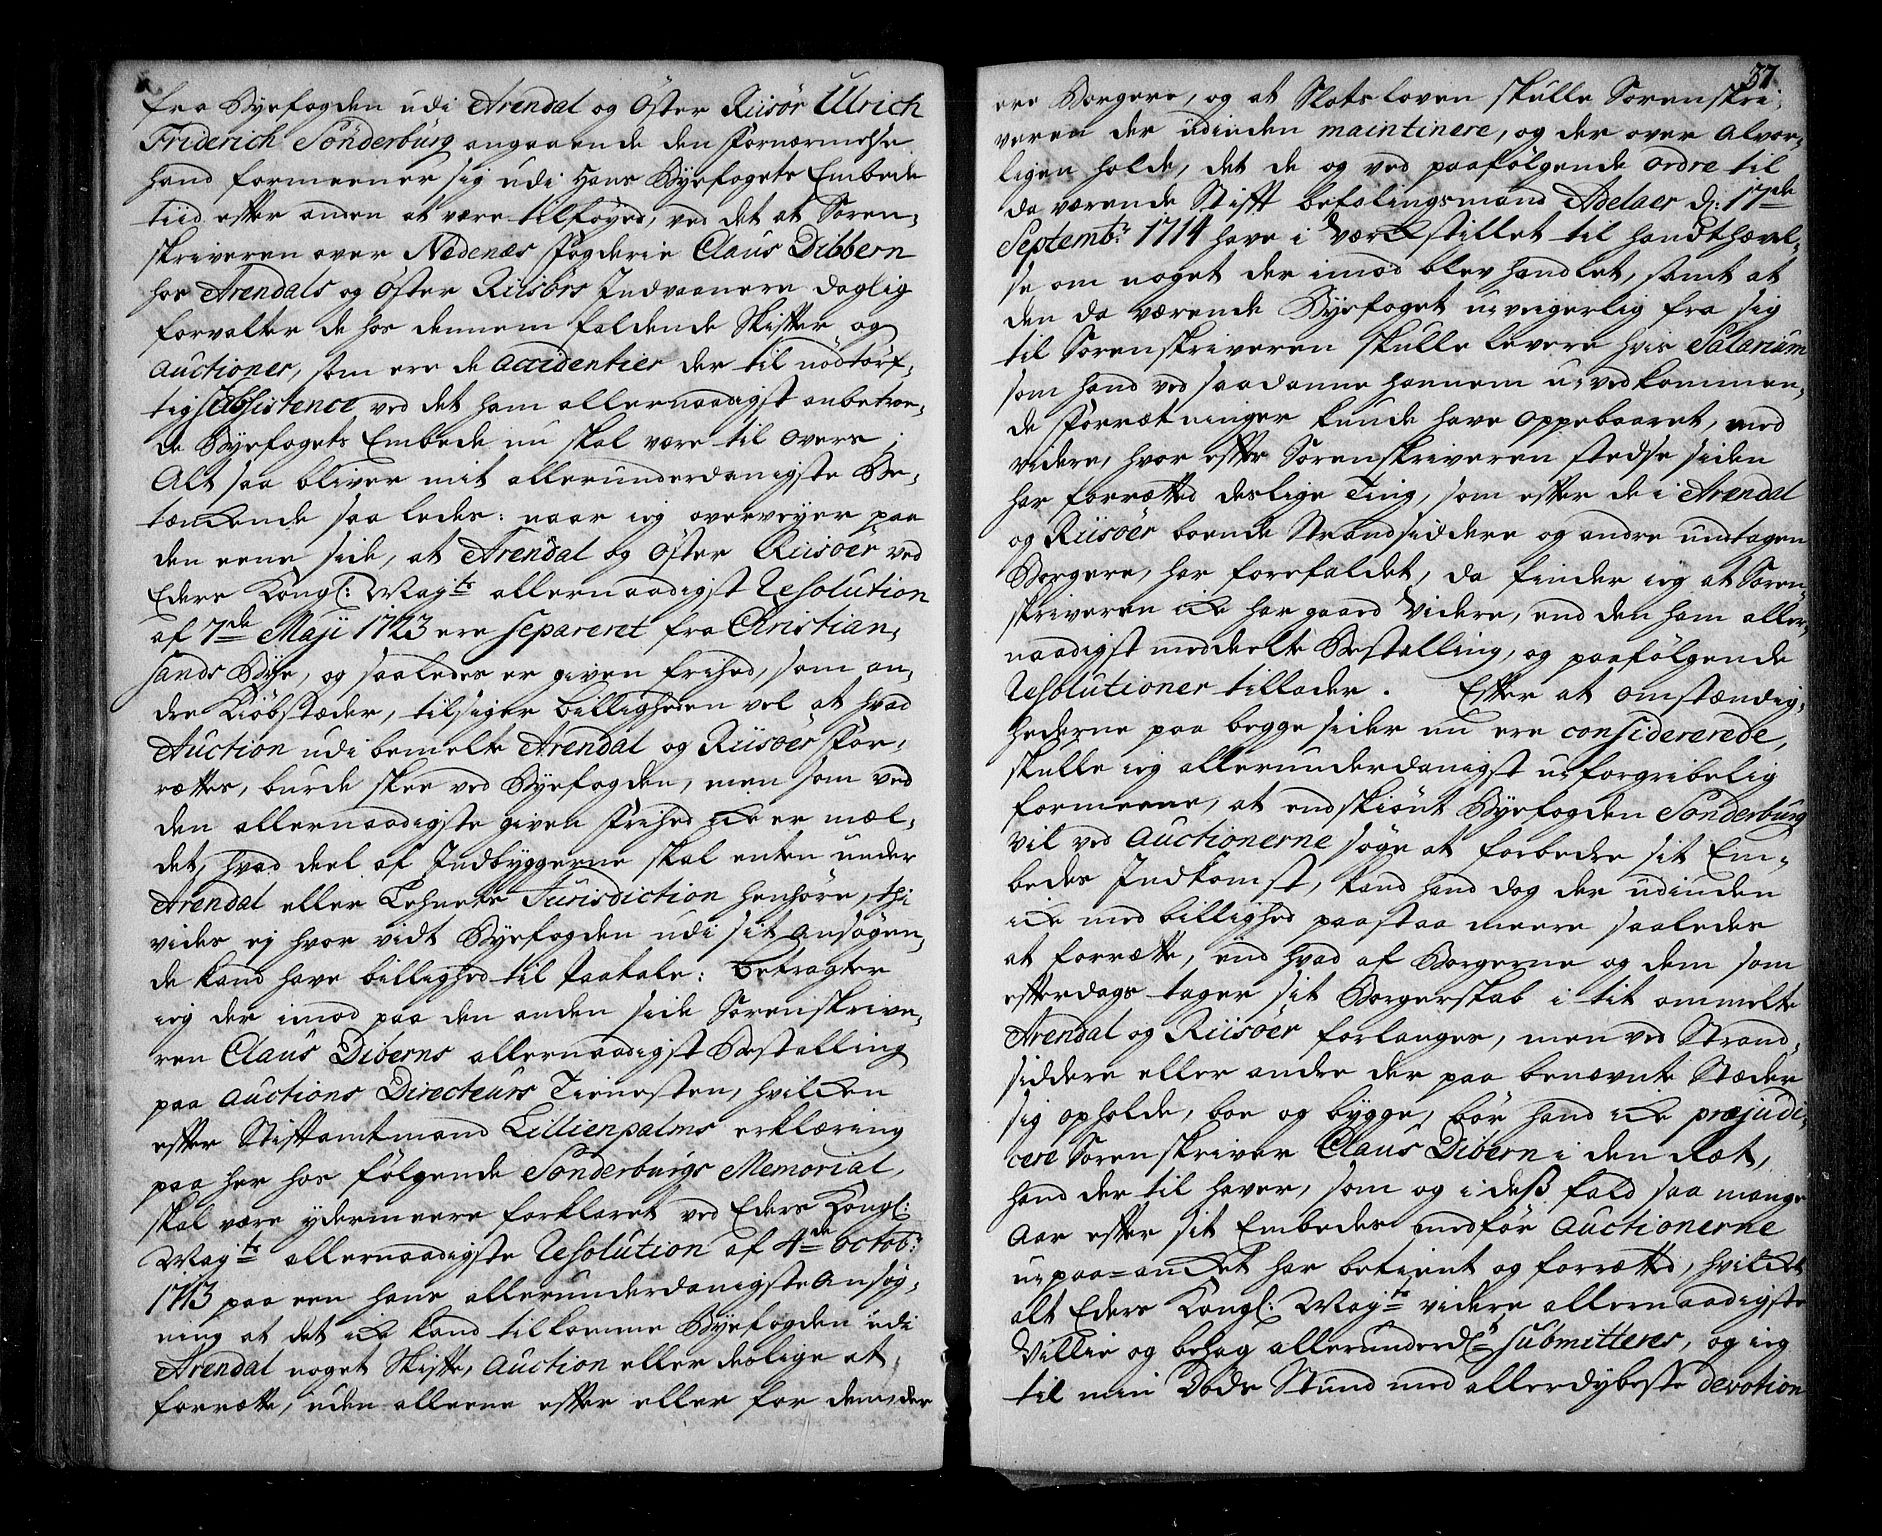 fra Byefogden udi Arendal og Öster Riisör Ulrich
Friderich Sönderburg angaaende den Fornærmelse
hand formeener sig udi hans Byefogets Embede
tiid efter anden at være tilföyed, ved det at Soren-
skriveren over Nedenæs Fogderie Claus Dibbern
hos Arendals og Öster Riisörs Indvaanere daglig
forvalter de hos dennem faldende Skifter og
Auctioner, som ere de Accidentier der til nödtörf-
tig Subsistence ved det ham allernaadigst anbetroe-
de Byefogets Embede nu skal være til overs;
Alt saa bliver mit allerunderdanigste Be-
tænkende saaledes: naar ieg overveyer paa
den eene side, at Arendal og Öster Riisöer ved
Eders Kongl: Mayts allernaadigst Resolution
af 7de Maji 1723 ere Separeret fra Christian-
sands Bye, og saaledes er given frihed, som an-
dre Kiöbstæder, tilsiger billigheden vel at hvad
Auction udi bemelte Arendal og Riisöer For-
rettes, burde skee ved Byefogden, men som ved
den allernaadigste given Frihed icke er mæl-
det, hvad deel af Indbyggerne skal enten under
Arendal eller Lehnets Jurisdiction henhöre, thi
vides ej hvor vidt Byefogden udi sit Ansögen-
de kand have billighed til Paatale: betragter
ieg der imod paa den anden side Sorenskrive-
ren Claus Diberns allernaadigst Bestalling
paa Auctions Directeurs Tienesten, hvilcken
efter Stiftamtmand Lillienpalms erklæring
paa her hos fölgende Sönderburgs Memorial,
skal være ydermeere forklaret ved Eders Kongl:
Mayts allernaadigste Resolution af 4de Octob:
1713 paa een hans allerunderdanigste Ansög-
ning at det icke kand tilkomme Byefogden udi
Arendal noget Skifte, Auction eller deslige at
forrette, uden alleene efter eller for dem, der
37.
ere Borgere, og at Slotsloven skulle Sorenskri-
veren der udinden maintinere, og der over alvor-
ligen holde, det de og ved paafölgende ordre til
da værende Stift befalingsmand Adelaer d: 17de
Septembr: 1714 have i værckstillet til handthævel-
se om noget der imod blev handlet, samt at
den da værende Byefoget uveigerlig fra sig
til Sorenskriveren skulle levere hvis Salarium
som hand ved saadanne hannem u-vedkommen-
de Forrætninger kunde have oppebaaret, med
videre, hvor efter Sorenskriveren stedse siden
har forrætted deslige Ting, som efter de i Arendal
og Riisöer boende Strandsiddere og andre undtagen
Borgere, har forefaldet, da finder ieg at Soren-
skriveren icke har gaaed videre, end den ham aller-
naadigst meddeelte Bestalling, og paafölgende
Resolutioner tillader. Efter at omstændig-
hederne paa begge sider nu ere considererede,
skulle ieg allerunderdanigst u-forgribelig
formeene, at endskiönt Byefogden Sönderburg
vil ved Auctionerne söge at forbedre sit Em-
bedes Indkomst, kand hand dog der udinden
icke med billighed paastaa meere saaledes
at forrætte, end hvad af Borgerne og dem som
efterdags tager sit Borgerskab i tit ommelte
Arendal og Riisöer forlanges, men ved Strand-
siddere eller andre der paa benævnte Stæder
sig opholde, boe og bygge, bör hand icke præjudi-
cere Sorenskriver Claus Dibern i den Ræt,
hand der til haver, som og i deß fald saa mange
Aar efter sit Embedes medför Auctionerne
u-paa-ancket har betient og forrætted, hvilcket
alt Eders Kongl: Mayts videre allernaadigste
Villie og behag allerunderdst submitteres, og ieg
til min Döds Stund med allerdybeste devotion